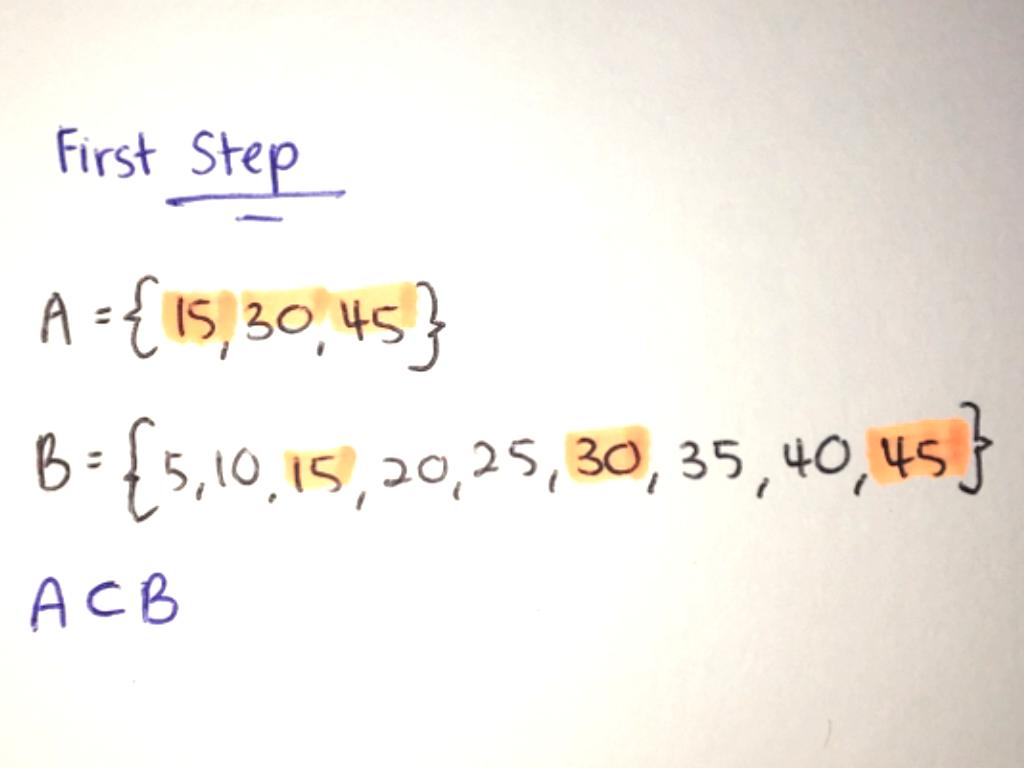 First Step
A = {15, 30, 45}
B = {5, 10, 15, 20, 25, 30, 35, 40, 45}
A ⊂ B